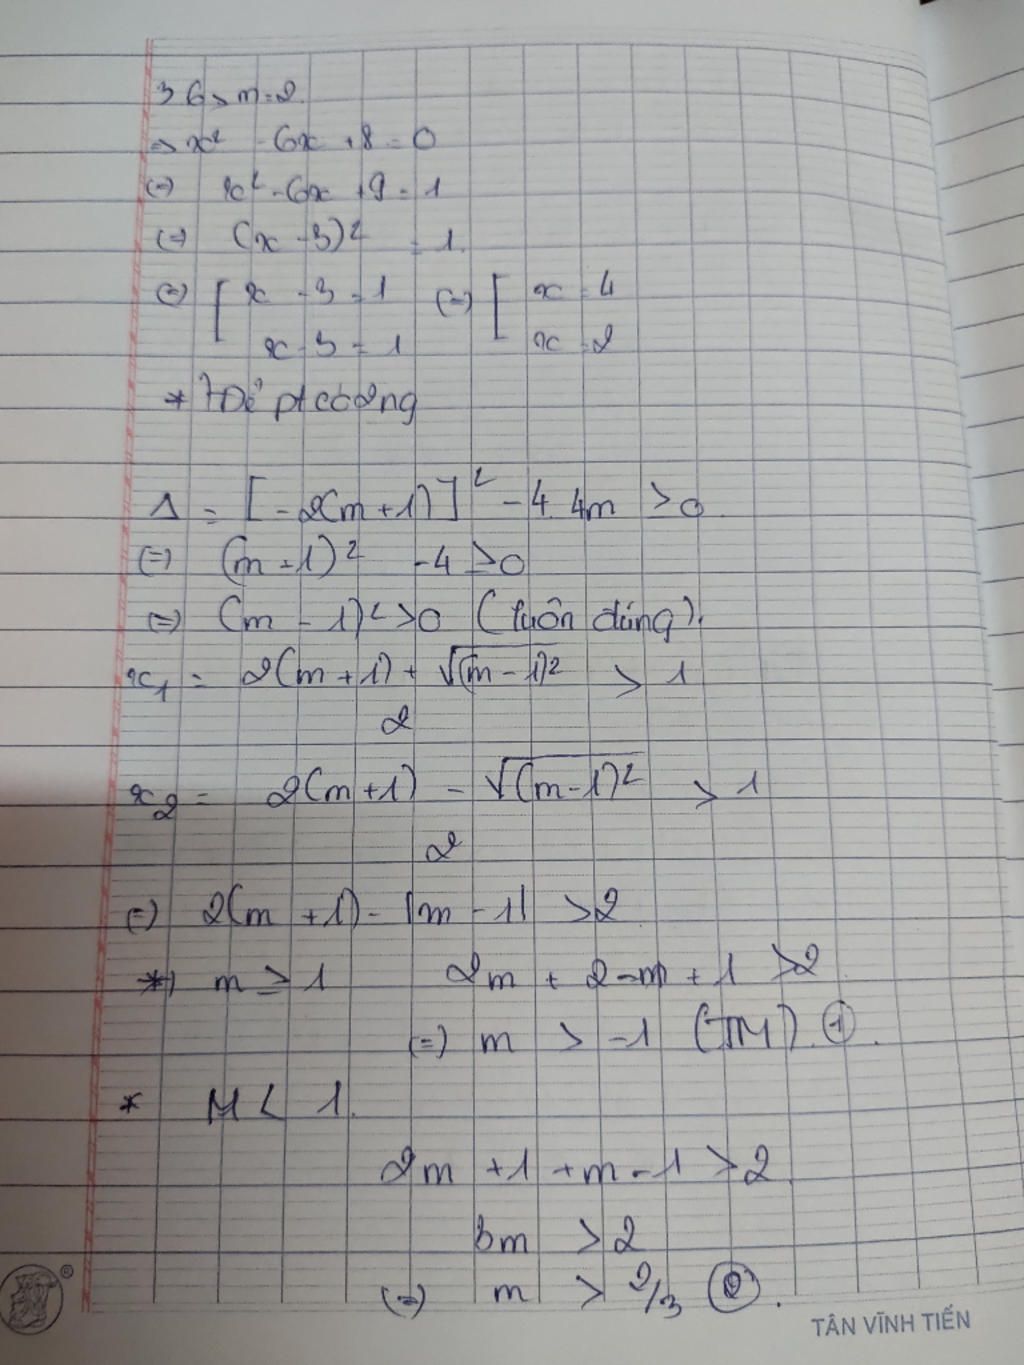 36, m=2.
=> x² - 6x + 8 = 0
(=) x² - 6x + 9 = 1
(=) (x - 3)² = 1.
(=) [ x - 3 = 1 (=) [ x = 4
x - 3 = 1 x = 2
* Để pt có 2ng
Δ = [-2(m+1)]² - 4.4m > 0.
(=) (m - 1)² - 4 ≥ 0
(=) (m - 1)² > 0 (luôn đúng).
x₁ = 2(m+1) + √(m-1)² > 1
2
x₂ = 2(m+1) - √(m-1)² > 1
2
(=) 2(m+1) - |m-1| > 2
*) m ≥ 1 2m + 2 - m + 1 > 2
(=) m > -1 (TM). ①.
* M < 1.
2m + 1 + m - 1 > 2
3m > 2
(=) m > 2/3 ②.
®
TÂN VĨNH TIẾN